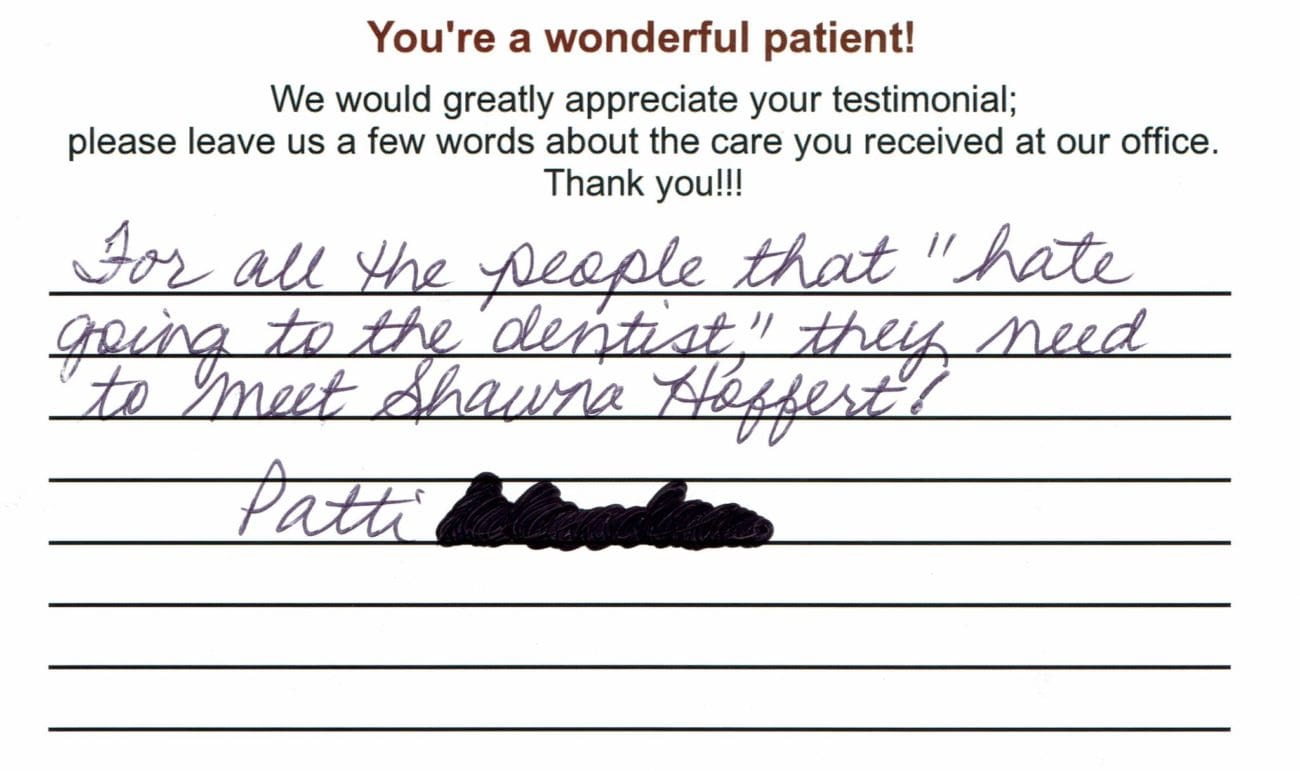 You're a wonderful patient!
We would greatly appreciate your testimonial;
please leave us a few words about the care you received at our office.
Thank you!!!
For all the people that "hate
going to the dentist," they need
to meet Shawna Hoffert!
Patti